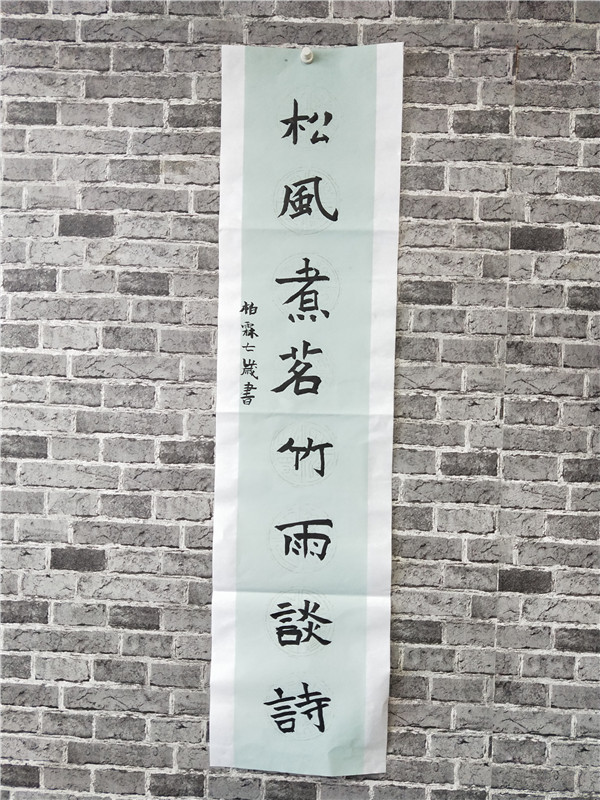 松風煮茗竹雨談詩
柏霖七歲書